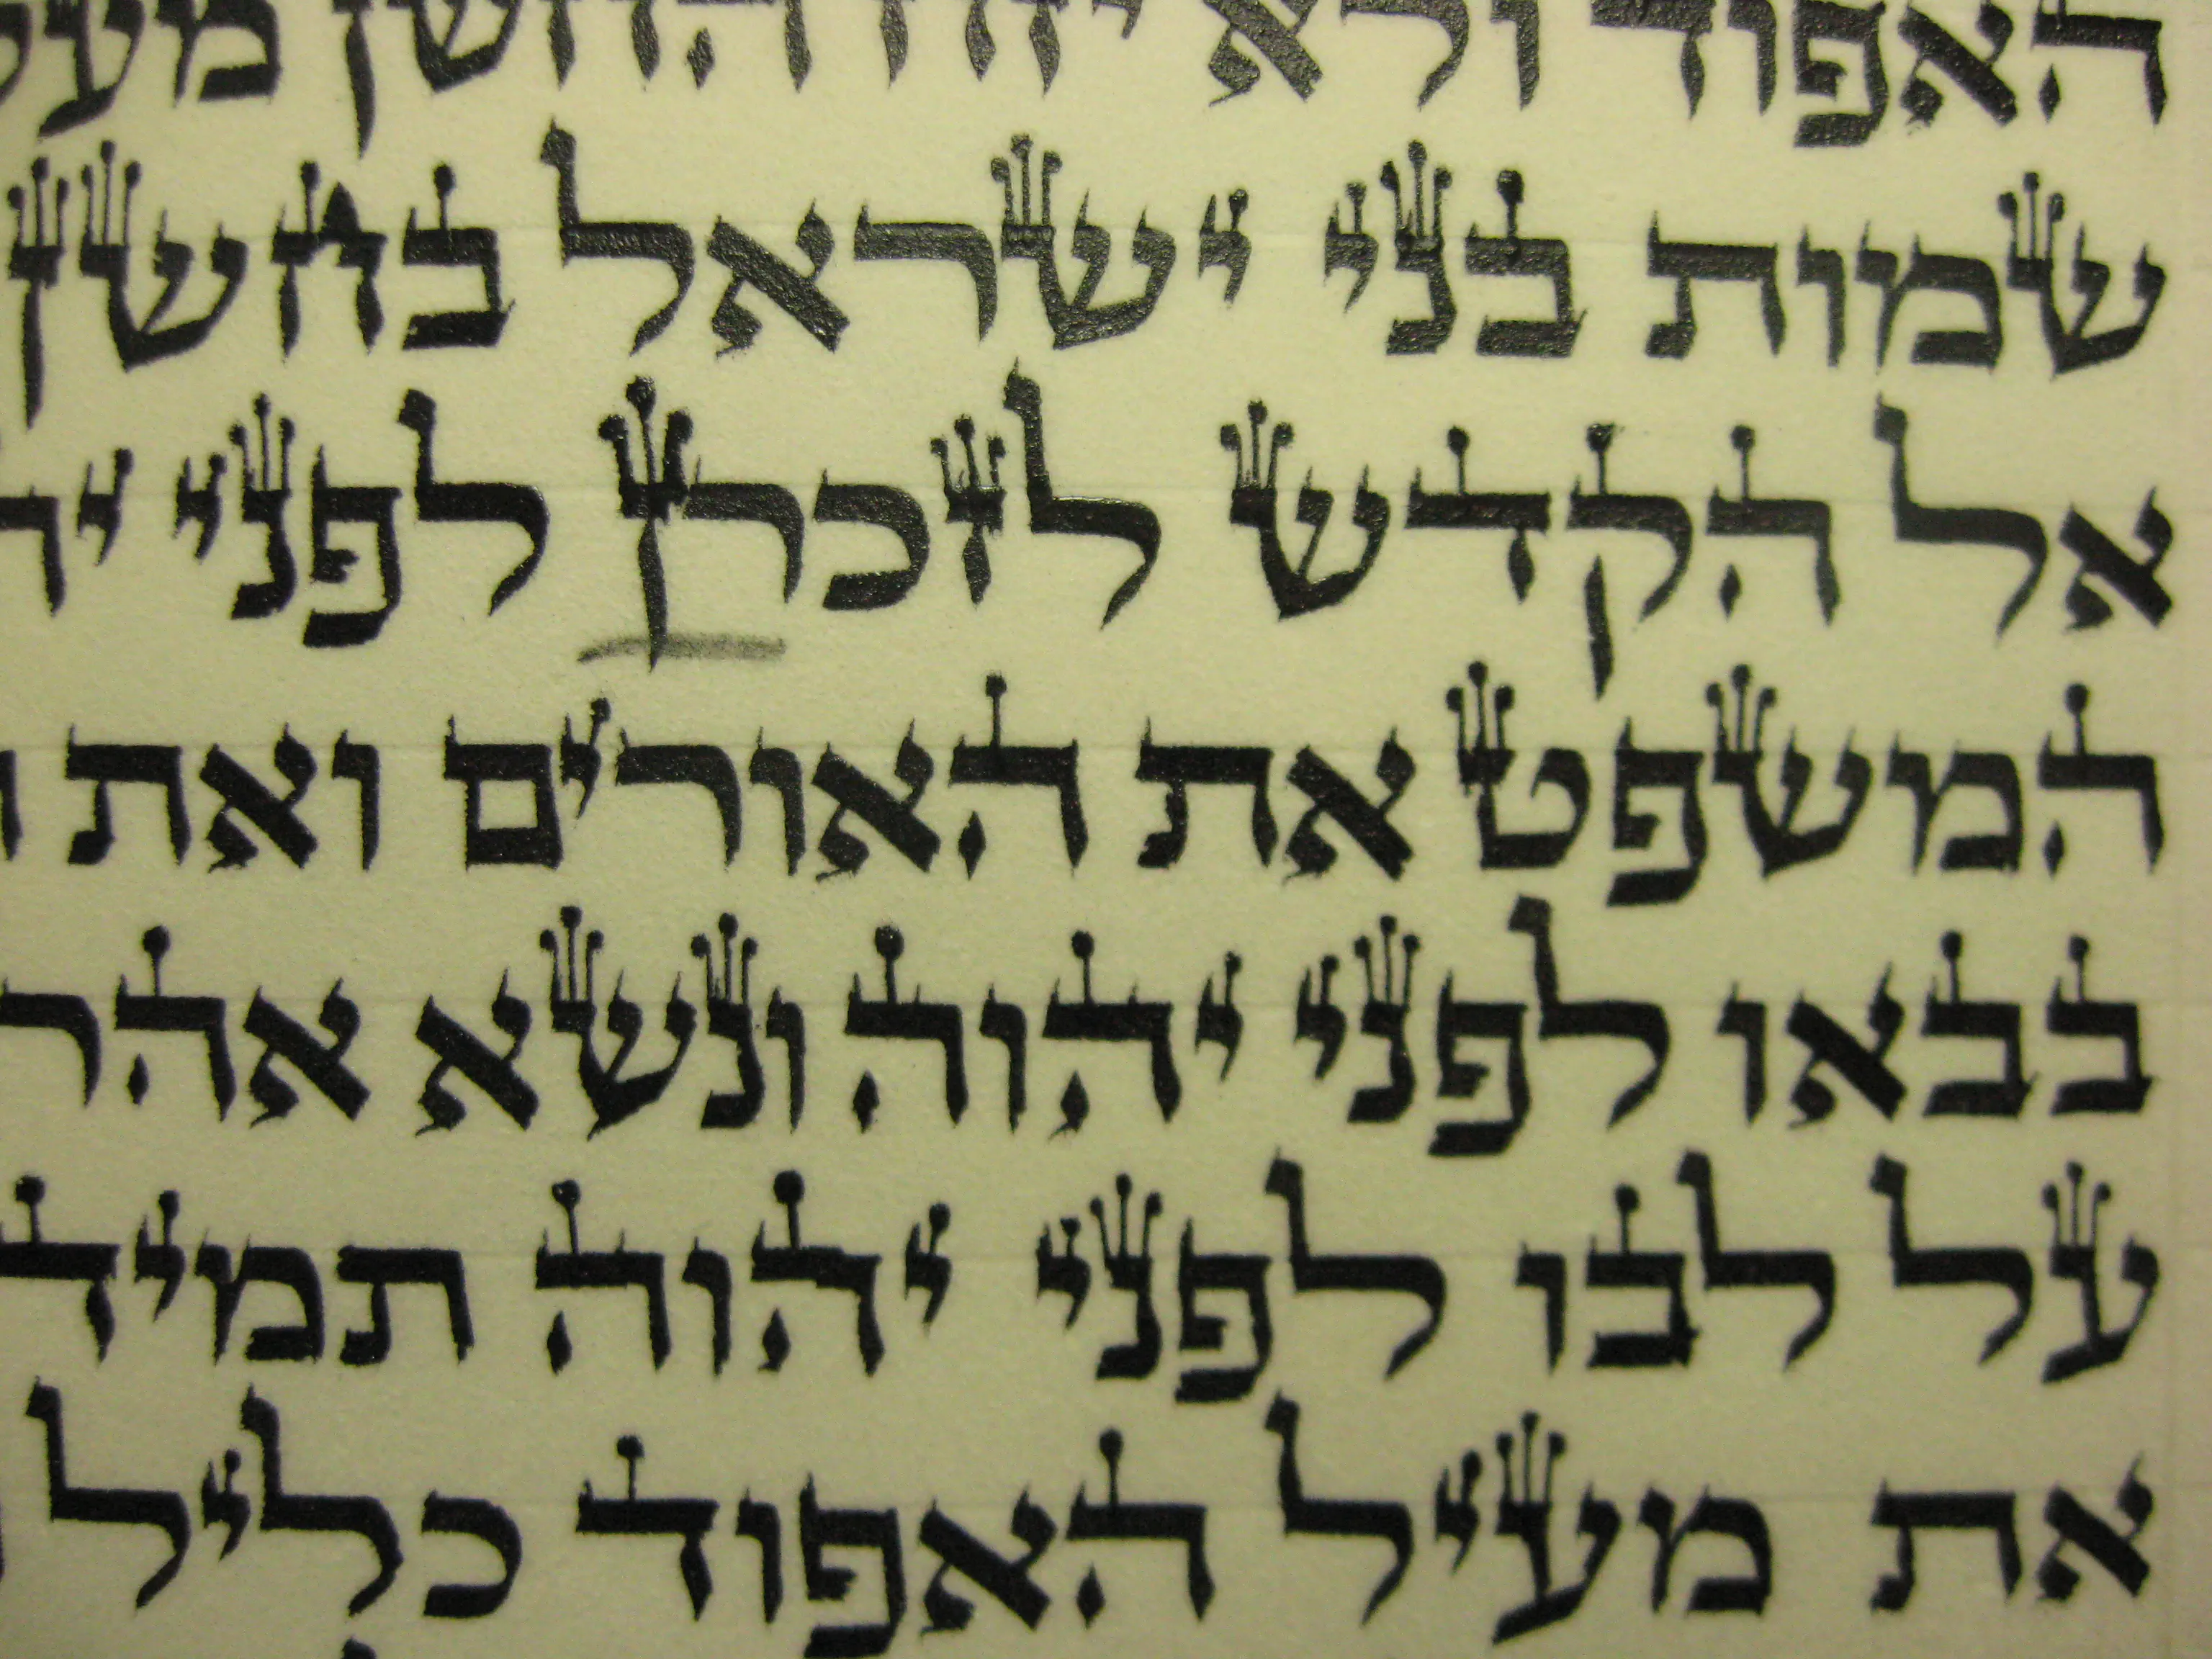 האפוד ולא יזח החשן
שמות בני ישראל בחשן
אל הקדש לזכרן לפני
המשפט את האורים ואת
בבאו לפני יהוה ונשא אהר
על לבו לפני יהוה תמיד
את מעיל האפוד כליל